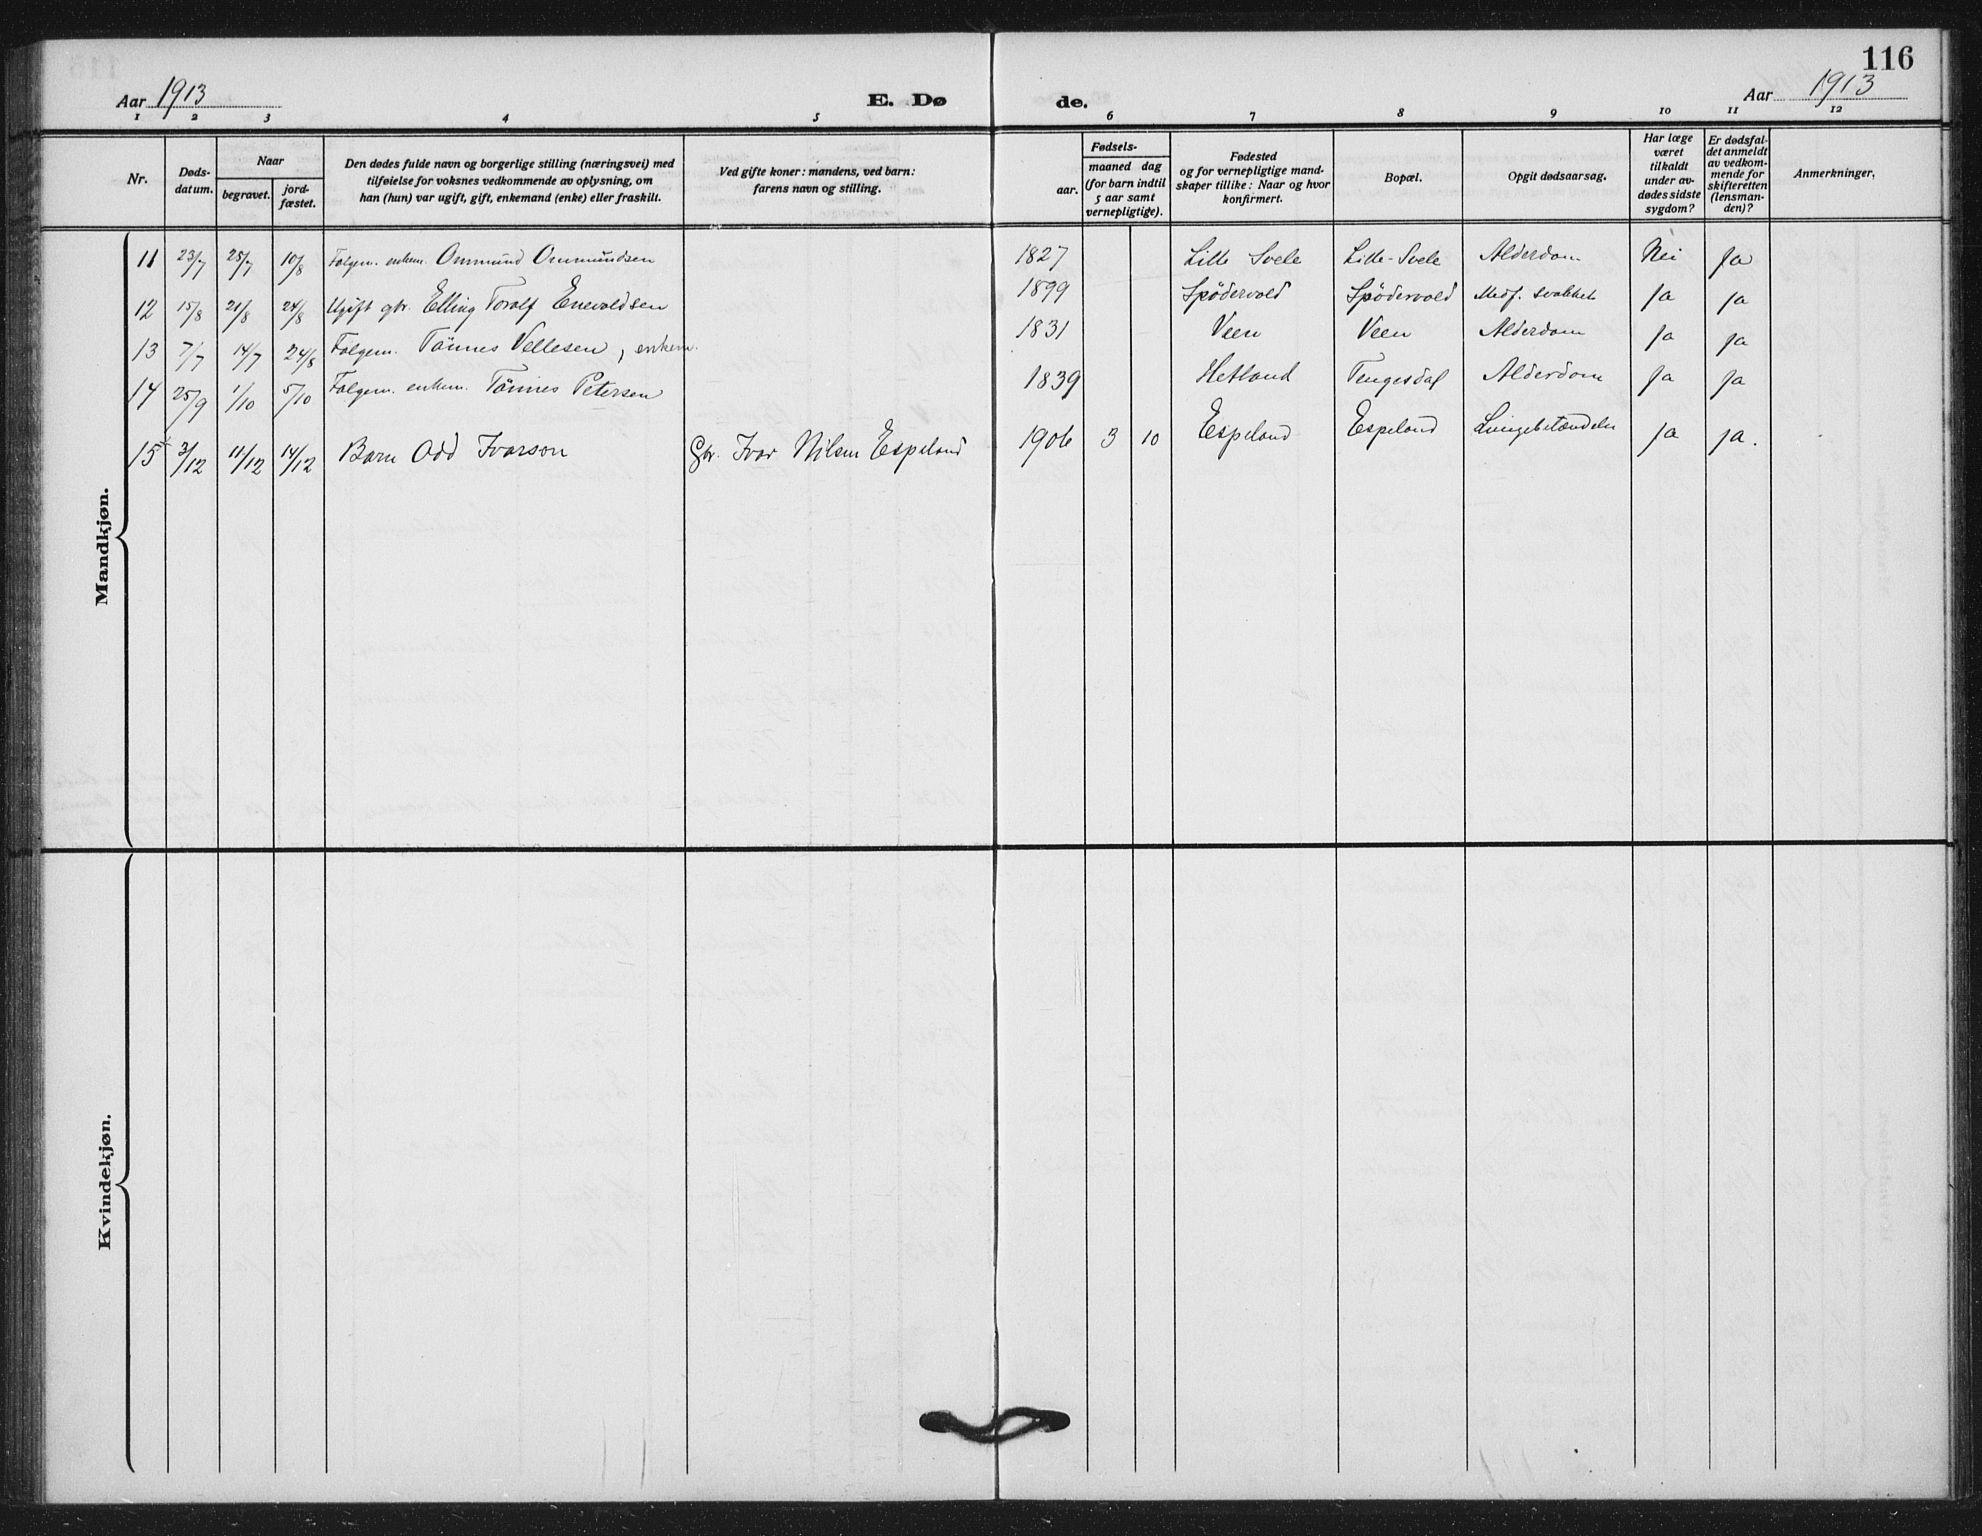 116
Aar 1913 E. Døde. Aar 1913
1 2 3 4 5 6 7 8 9 10 11 12
Nr.
Døds-
datum.
Naar
begravet.
jord-
fæstet.
Den dødes fulde navn og borgerlige stilling (næringsvei) med
tilføielse for voksnes vedkommende av oplysning, om
han (hun) var ugift, gift, enkemand (enke) eller fraskilt.
Ved gifte koner: mandens, ved barn:
farens navn og stilling.
Fødsels-
aar.
maaned dag
(for barn indtil
5 aar samt
vernepligtige).
Fødested
og for vernepligtige mand-
skaper tillike: Naar og hvor
konfirmert.
Bopæl.
Opgit dødsaarsag.
Har læge
været
tilkaldt
under av-
dødes sidste
sygdom?
Er dødsfal-
det anmeldt
av vedkom-
mende for
skifteretten
(lensman-
den)?
Anmerkninger.
Mandkjøn.
11 23/7 25/7 10/8 Følgem. enkem. Ommund Ommundsen 1827 Lille Svele Lille-Svele Alderdom Nei Ja
12 15/8 21/8 24/8 Ugift gbr. Elling Toralf Enevoldsen 1899 Spödervold Spödervold Medf. svakhet Ja Ja
13 7/7 14/7 24/8 Følgem. Tönnes Vellesen, enkem. 1831 Veen Veen Alderdom Ja Ja
14 25/9 1/10 5/10 Følgem. enkem. Tönnes Petersen 1839 Hetland Tengesdal Alderdom Ja Ja
15 3/12 11/12 14/12 Barn Odd Ivarson Gbr. Ivar Nilsen Espeland 1906 3 10 Espeland Espeland Lungebetændelse Ja Ja.
Kvindekjøn.